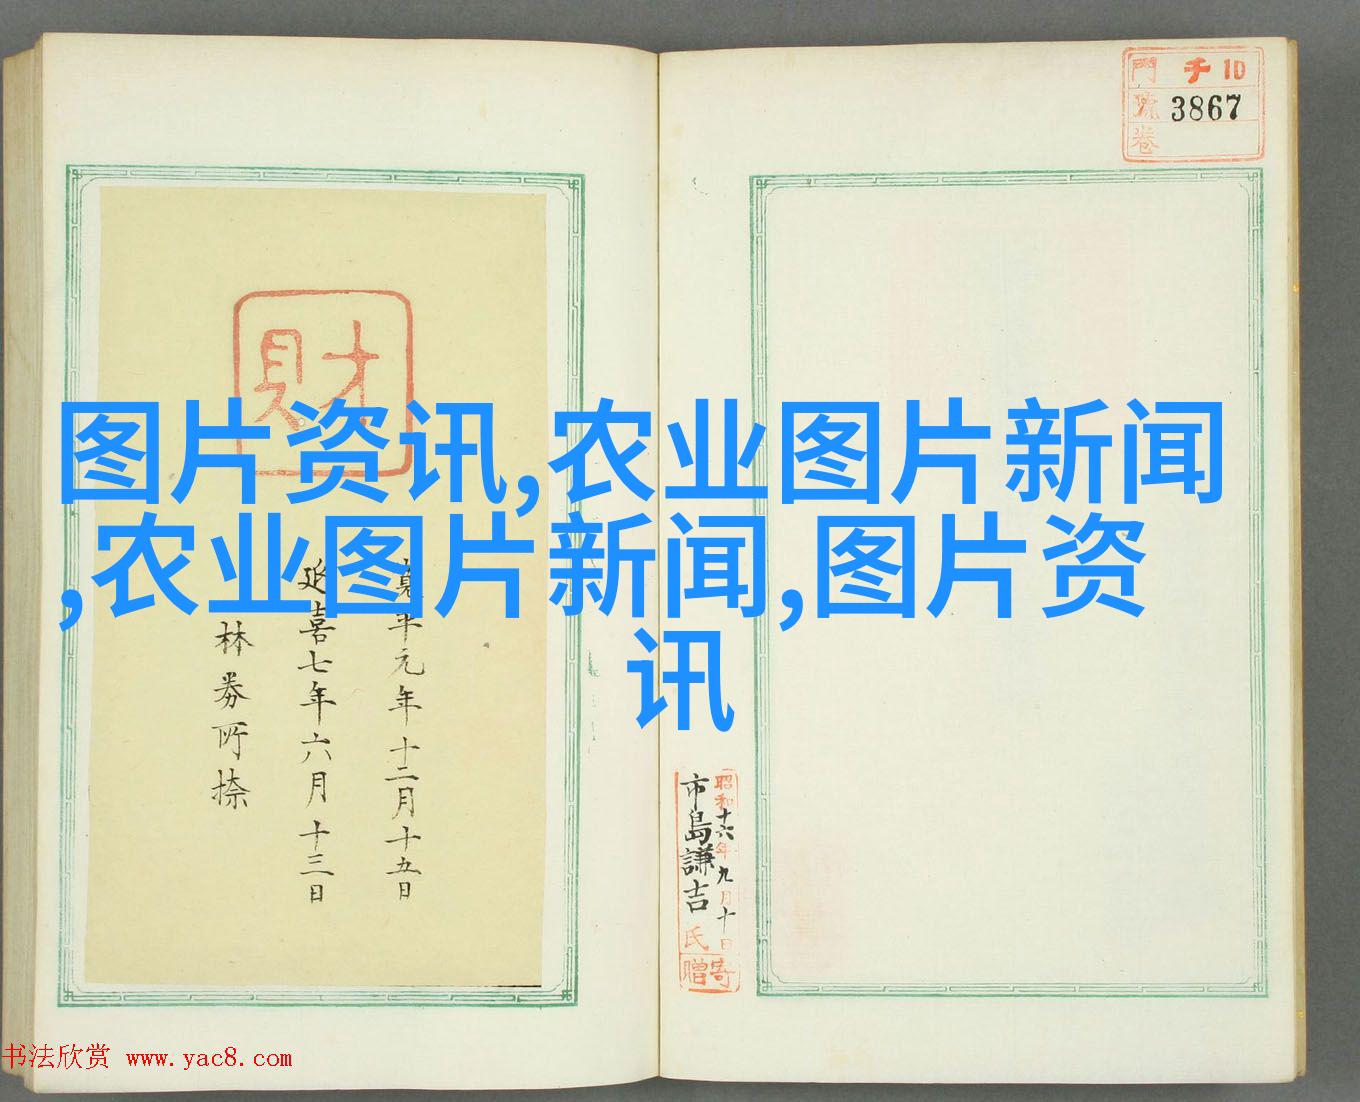 門 チ 10
號 3867
卷
財
图片资讯,农业图片新闻
,农业图片新闻,图片资
讯
寛平元年十二月十五日
延喜七年六月十三日
林券所捺
昭和十六年九月十日
市島謙吉氏寄贈
书法欣赏 www.yac8.com